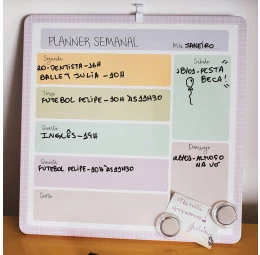 PLANNER SEMANAL
Mês JANEIRO
Segunda
20-DENTISTA-16H
BALLET JULIA - 10H
Terça
FUTEBOL FELIPE-10H ÀS 11H30
Quarta
INGLÊS-19H
Quinta
FUTEBOL FELIPE-10H ÀS 11H30
Sexta
Sábado
25/01-FESTA
BECA!
Domingo
26/01-ALMOÇO
NA VÓ
Julia